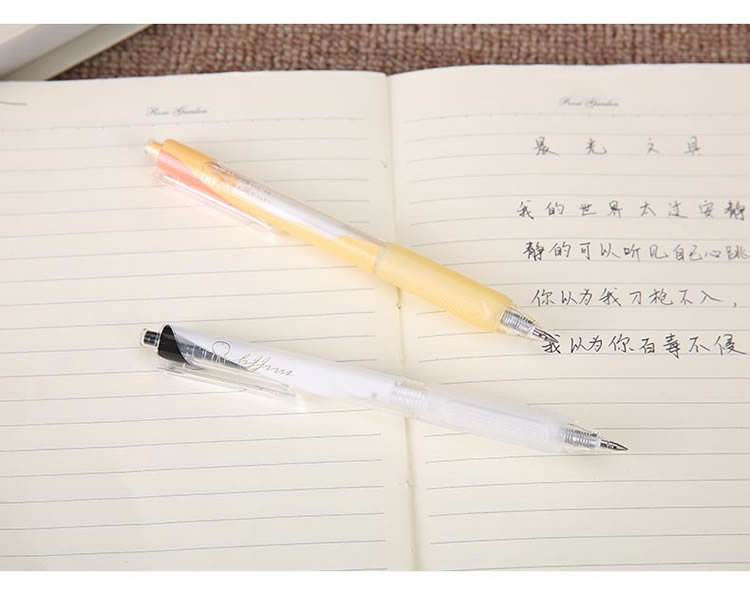 Rose Garden
Rose Garden
晨光 文具
我的世界太过安静
静的可以听见自己心跳
你以为我刀枪不入，
我以为你百毒不侵